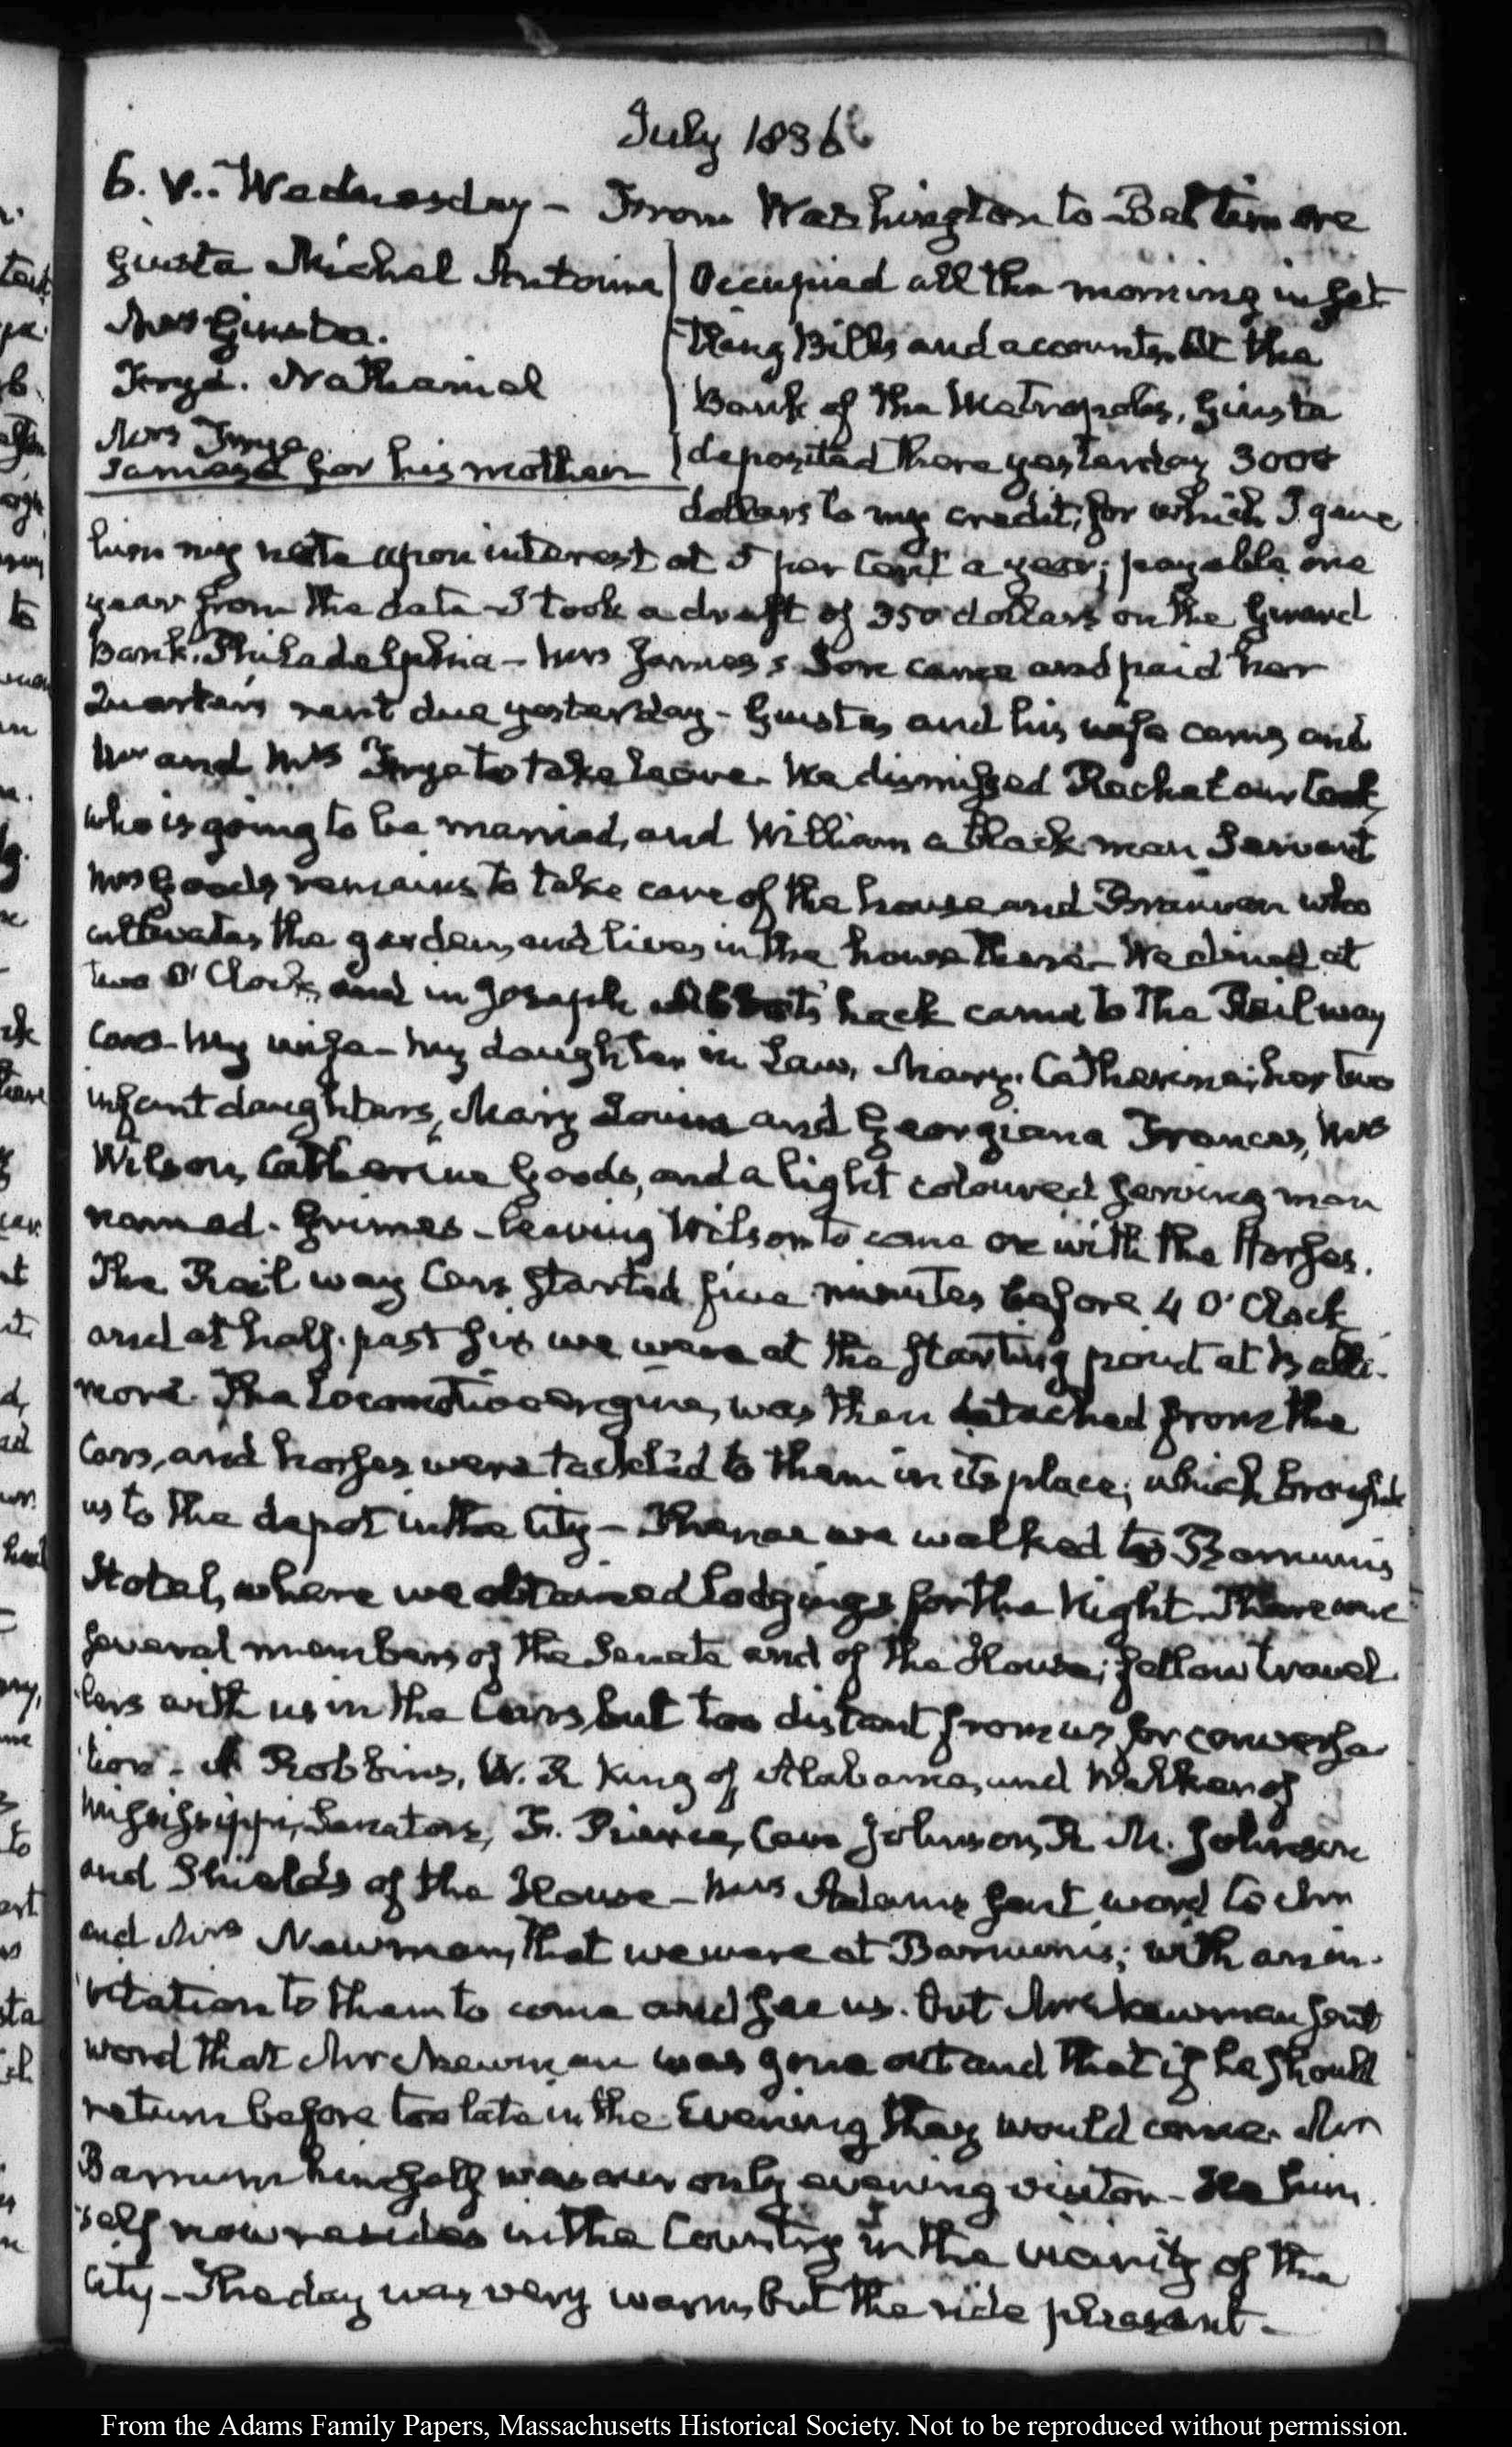 July 1836
6. V.. Wednesday - From Washington to Baltimore
Giusta Michel Antoine
Mrs Giusta.
Frye. Nathaniel
Mrs Frye
James's for his mother
Occupied all the morning in set
tling Bills and accounts. At the
Bank of the Metropolis, Giusta
deposited there yesterday 3000
dollars to my credit, for which I gave
him my note upon interest at 5 per Cent a year; payable one
year from the date - I took a draft of 350 dollars on the Girard
Bank. Philadelphia - Mrs James's Son came and paid her
Quarter's rent due yesterday - Giusta, and his wife came, and
Mr and Mrs Frye to take leave. We dismissed Rachel our Cook,
who is going to be married, and William a black man Servant
Mrs Goods remains to take care of the house and who
cultivates the garden, and lives in the house there - We dined at
two O'Clock, and in Joseph hack came to the Railway
Cars - My wife - My daughter in Law, Mary. Catherine; her two
infant daughters, Mary Louisa and Georgiana Frances, Mrs
Wilson, Catherine Goods, and a light coloured serving man
named. Grimes - leaving Wilson to come on with the Horses.
The Rail way Cars started five minutes before 4 O'Clock
and at half past six we were at the starting point at Balti-
more. The Locomotive engine, was then detached from the
Cars, and horses were tackled to them in its place; which brought
us to the depot in the City - Thence we walked to Barnum's
Hotel, where we obtained lodgings for the Night. There were
several members of the Senate and of the House; fellow travel
lers with us in the Cars, but too distant from us for conversa
tion - A Robbins, W. R King of Alabama, and Walker of
Mississippi, Senators, F. Pierce, Cave Johnson, R. M. Johnson
and Shields of the House - Mrs Adams sent word to Mr
and Mrs Newman, that we were at Barnum's; with an in-
vitation to them to come and see us. But Mrs Newman sent
word that Mr Newman was gone out and that if he should
return before too late in the Evening they would come. Mr
Barnum himself was our only evening visitor - He him-
self now resides in the Country in the vicinity of the
City - The day was very warm, but the ride pleasant -
From the Adams Family Papers, Massachusetts Historical Society. Not to be reproduced without permission.